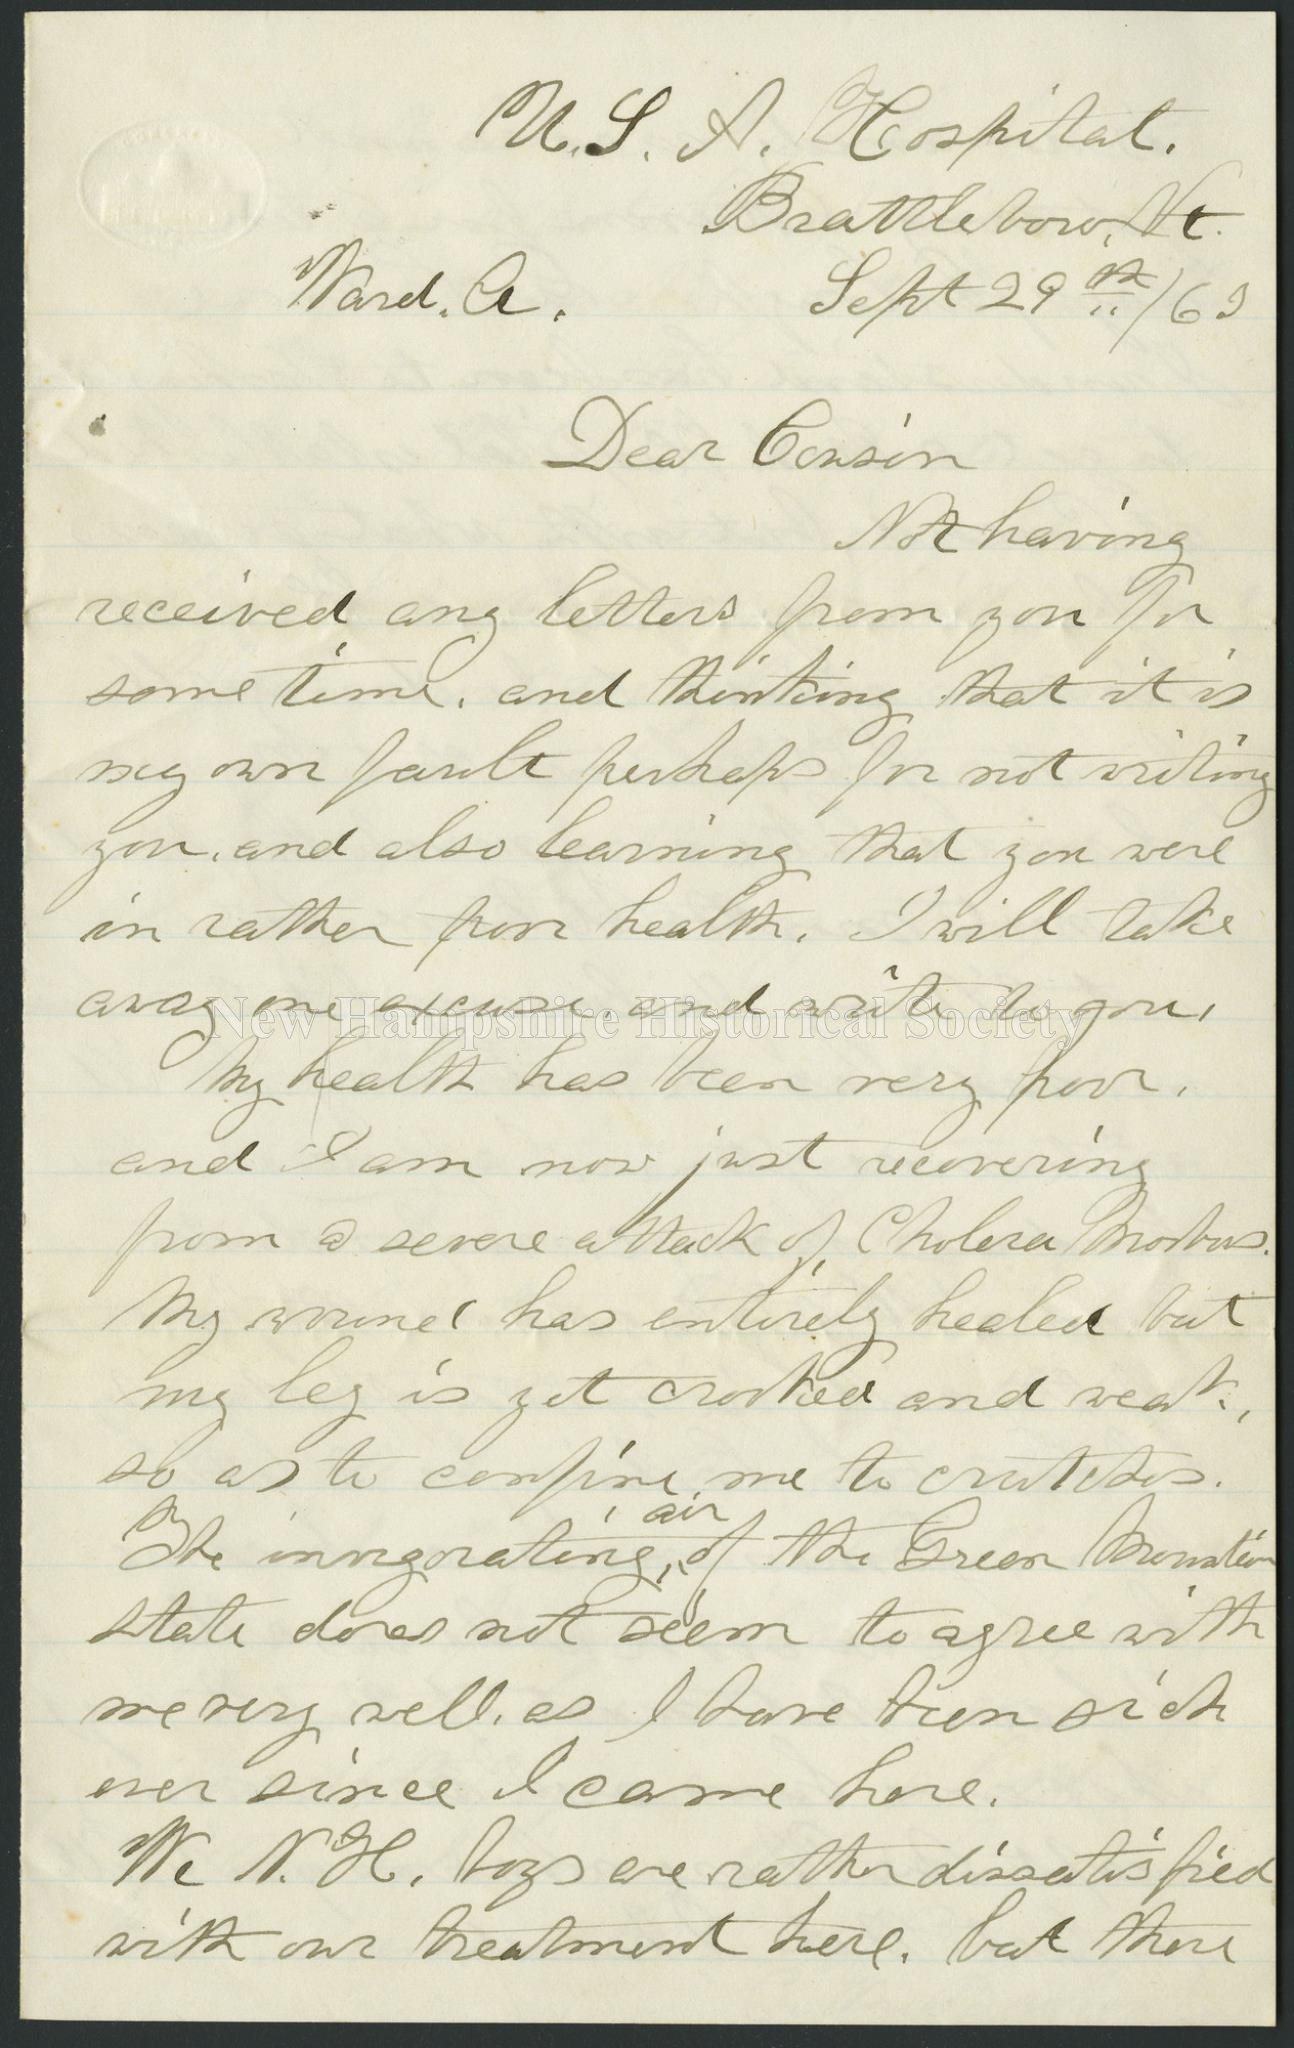 U.S.A. Hospital.
Brattleboro, Vt.
Ward. A. Sept 29th /63
Dear Cousin
Not having
received any letters from you for
some time. and thinking that it is
my own fault perhaps for not writing
you. and also learning that you were
in rather poor health. I will take
away one excuse. and write to you.
New Hampshire Historical Society
My health has been very poor.
and I am now just recovering
from a severe attack of Cholera Morbus.
My wound has entirely healed but
my leg is yet crooked and weak.,
so as to confine me to crutches.
air
The invigorating, of the Green Mountain
state does not seem to agree with
me very well. as I have been sick
ever since I came here.
We N.H. boys are rather dissatisfied
with our treatment here. but there